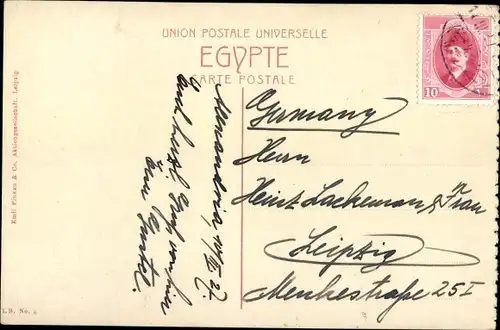 UNION POSTALE UNIVERSELLE
EGYPTE
CARTE POSTALE
10
Emil Pinkau & Co. Aktiengesellschaft, Leipzig
Alexandria
Auch herzl. Gruß von
Germany
Herrn
Heinz Lackemann & Frau
Leipzig
Menkestraße 25 I